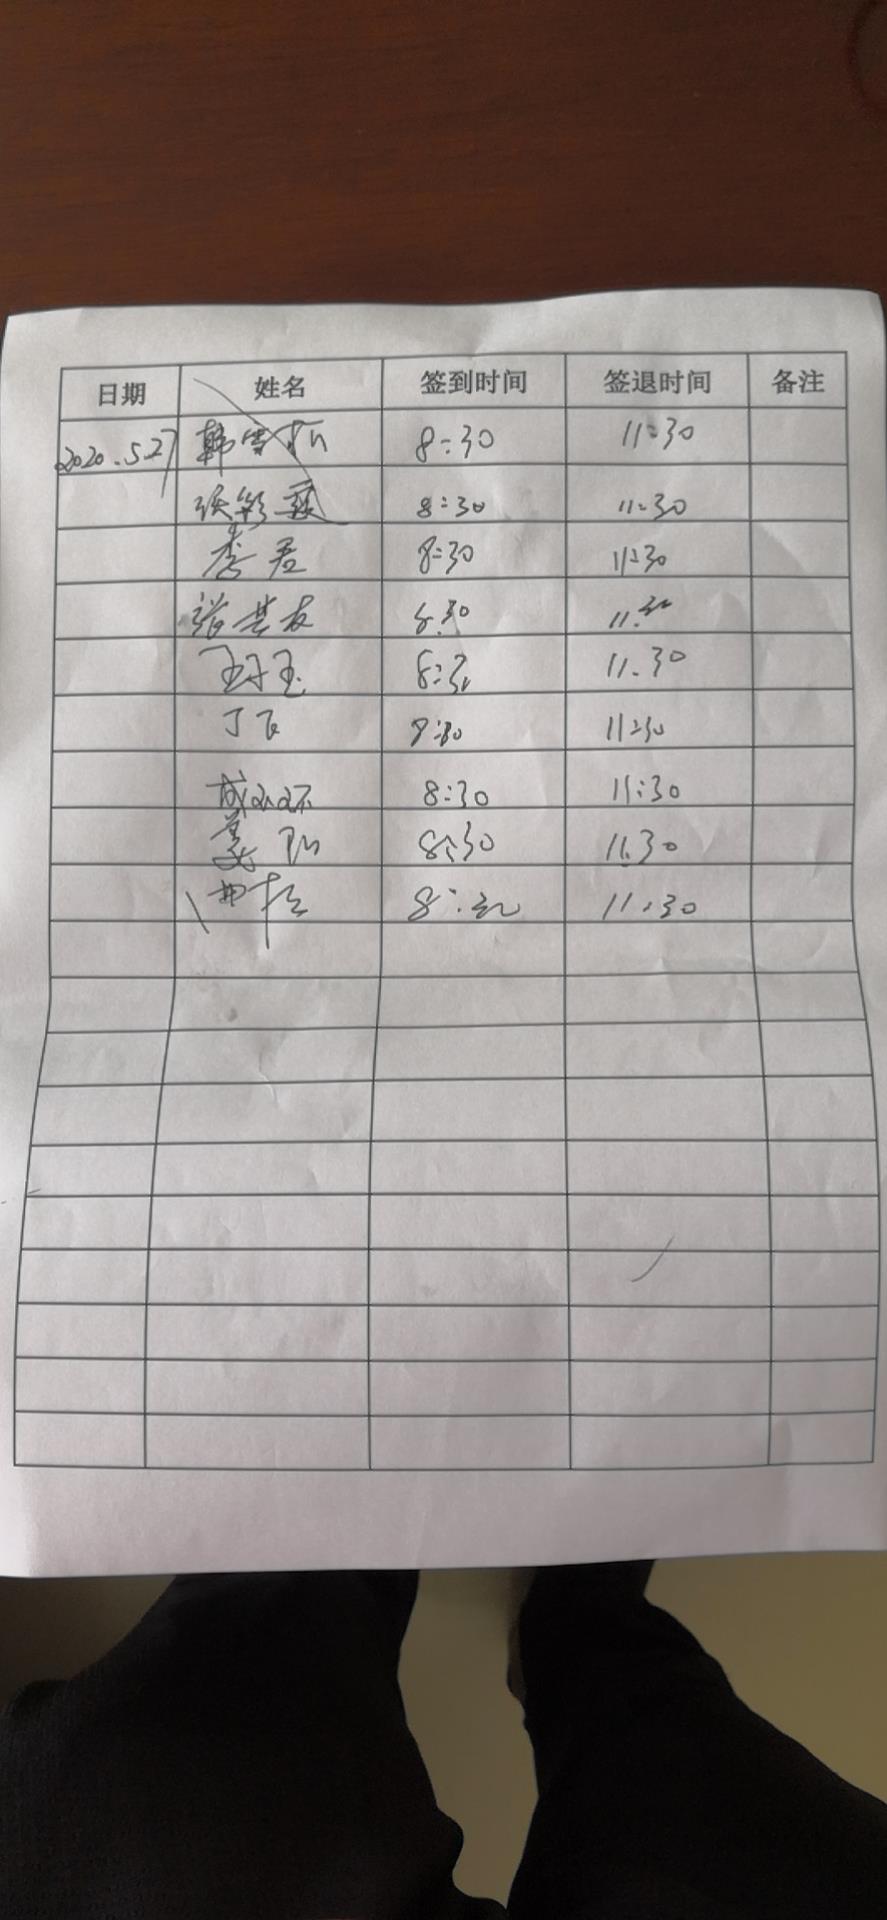 日期 姓名 签到时间 签退时间 备注
2020.5.27 韩雪 8:30 11:30
张彩霞 8:30 11:30
李君 8:30 11:30
张其友 8:30 11:30
王子玉 8:30 11.30
丁飞 8:30 11:30
成环环 8:30 11:30
姜 8:30 11:30
曲松 8:30 11:30